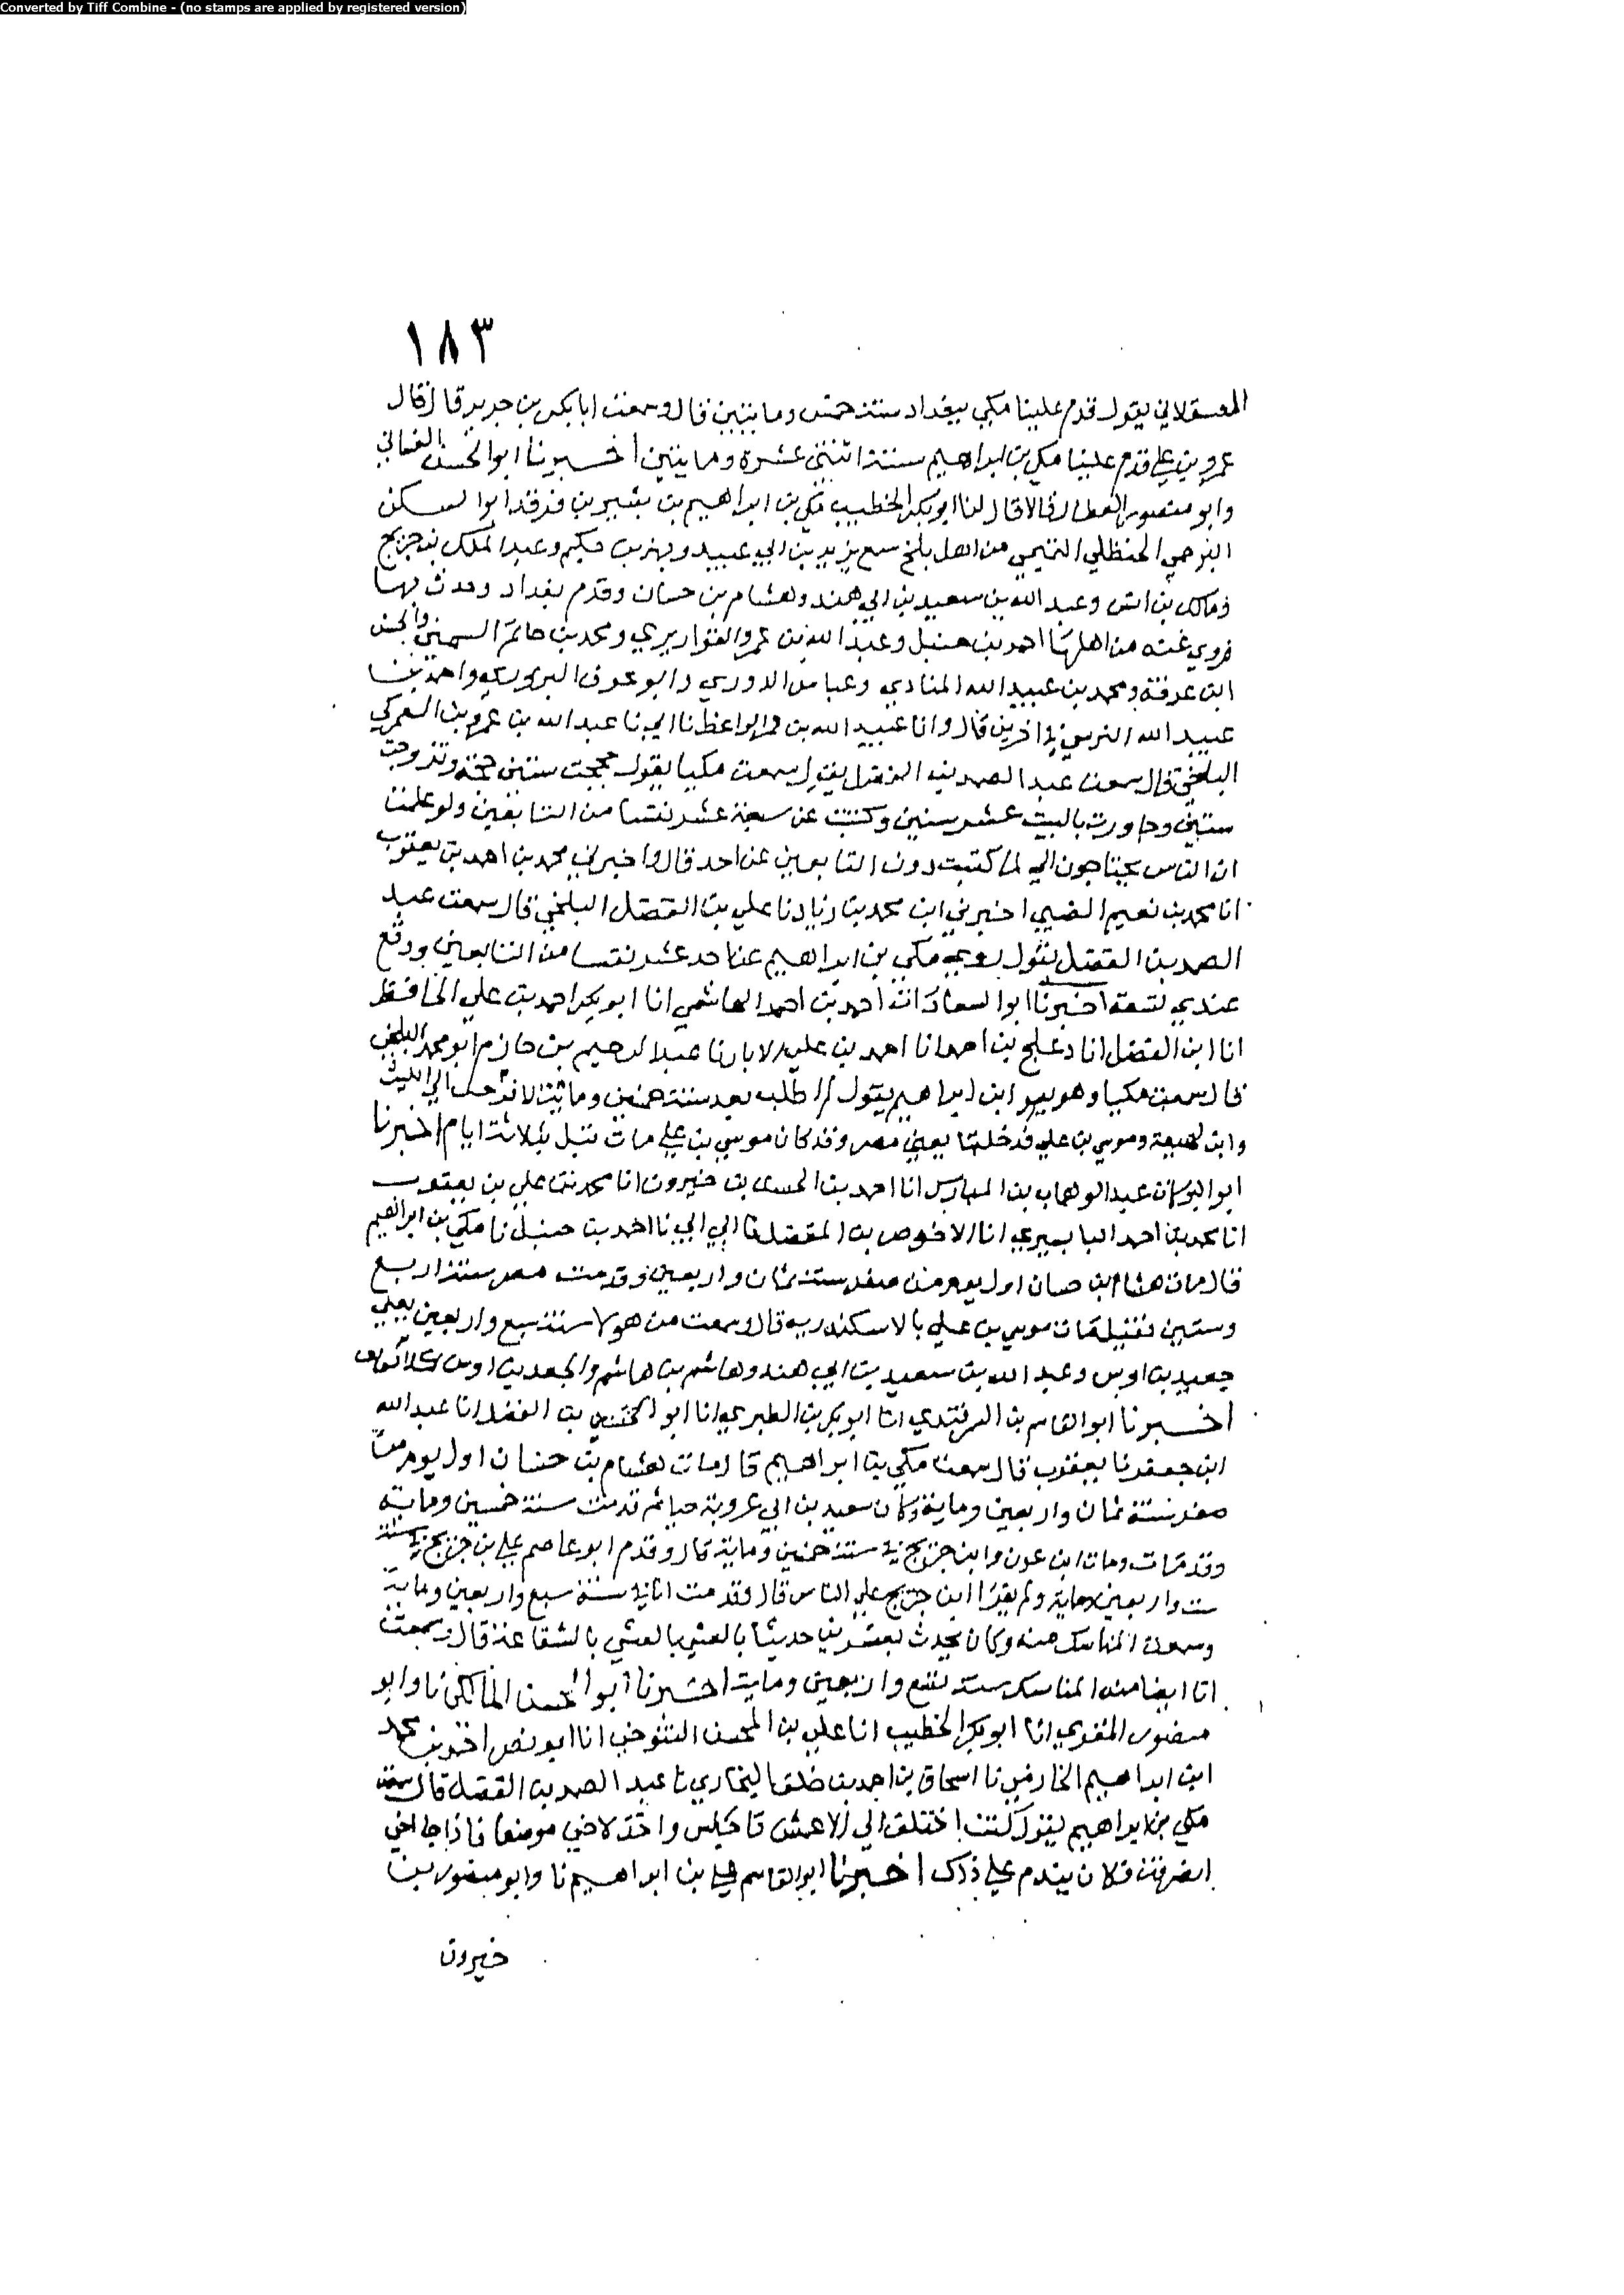 Converted by Tiff Combine - (no stamps are applied by registered version)
١٨٣
العسقلاني يقول قدم علينا مكي ببغداد سنة خمس ومايتين قال وسمعت ابا بكر بن جرير قال قال
عمرو بن علي قدم علينا مكي بن ابراهيم سنة اثنتى عشرة ومايتين اخبرنا ابوا الحسن الغساني
وابو منصور العطار قالا قال لنا ابو بكر الخطيب مكي بن ابراهيم بن بشير بن فرقد ابوا السكن
البرجمي الحنظلي التميمي من اهل بلخ سمع يزيد بن ابي عبيد وبهز بن حكيم وعبد الملك بن جريج
ومالك بن انس وعبد الله بن سعيد بن ابي هند وهشام بن حسان وقدم بغداد وحدث بها
فروي عنه من اهلها احمد بن حنبل وعبيد الله بن عمر والقواريري ومحمد بن حاتم السمين والحسن
ابن عرفة ومحمد بن عبيد الله المنادي وعباس الدوري وابو عوف البزوري واحمد بن
عبيد الله النرسي في اخرين قال وانا عبيد الله بن عمر الواعظ نا ابي نا عبد الله بن عمرو بن العمركي
البلخي قال سمعت عبد الصمد بن الفضل يقول سمعت مكيا يقول حججت ستين حجة وتزوجت
ستين وجاورت بالبيت عشر سنين وكتبت عن سبعة عشر نفسا من التابعين ولو علمت
ان الناس يحتاجون الي لما كتبت دون التابعين عن احد قال واخبرني محمد بن احمد بن يعقوب
انا محمد بن نعيم الضبي اخبرني ابن محمد بن زياد نا علي بن الفضل البلخي قال سمعت عبد
الصمد بن الفضل يقول روي مكي بن ابراهيم عن احد عشر نفسا من التابعين ووقع
عندي تسعة اخبرنا ابوا السعادات احمد بن احمد الهاشمي انا ابو بكر احمد بن علي الحافظ
انا ابن الفضل انا دعلج بن احمد انا احمد بن علي الابار نا عبد الرحيم بن حازم ابو محمد البلخي
قال سمعت مكيا وهو ابن ابراهيم يقول لم اطلب بعد سنة خمسين وماية الا ترحل الي الليث
وابن لهيعة وموسي بن علي فدخلتها يعني مصر وقد كان موسي بن علي مات قبل بثلاثة ايام اخبرنا
ابوا البركات عبد الوهاب بن المبارك انا احمد بن الحسن بن خيرون انا محمد بن علي بن يعقوب
انا محمد بن احمد البابسيري انا الاخوص بن المفضل نا ابي نا احمد بن حنبل نا مكي بن ابراهيم
قال مات هشام بن حسان اول يوم من صفر سنة ثمان واربعين وقدمت مصر سنة اربع
وستين فقيل مات موسي بن علي بالاسكندريه قال وسمعت من هولا سنة سبع واربعين يعني
جعيد بن اوس وعبد الله بن سعيد بن ابي هند وهاشم بن هاشم والجعد بن اوس
اخبرنا ابوا القاسم بن السمرقندي انا ابو بكر بن الطبري انا ابو الحسين بن الفضل انا عبد الله
ابن جعفر نا يعقوب قال سمعت مكي بن ابراهيم قال مات هشام بن حسان اول يوم من
صفر سنة ثمان واربعين وماية وكان سعيد بن ابي عروبة حيا ثم قدمت سنة خمسين وماية
وقد مات ومات ابن عون وابن جريج في سنة خمسين وماية قال وقدم ابو عاصم علي بن جريج في سنة
ست واربعين وماية ولم يقرا ابن جريج علي الناس قال وقدمت انا في سنة سبع واربعين وماية
وسمعت المناسك منه وكان يحدث بعشرين حديثا بالعشي بالعشي بالشفاعة قال وسمعت
انا ايضا منه المناسك سنة تسع واربعين وماية اخبرنا ابوا الحسن المالكي نا وابو
منصور المقري انا ابو بكر الخطيب انا علي بن المحسن التنوخي انا ابو نصر احمد بن محمد
ابن ابراهيم الخازمي نا اسحاق بن احمد بن خلف البخاري نا عبد الصمد بن الفضل قال سمعت
مكي بن ابراهيم يقول كنت اختلف الي الاعمش فاجلس واخذ لاخي موضعا فاذا جا اخي
انصرفت فلان يندم علي ذلك اخبرنا ابو القاسم علي بن ابراهيم نا وابو منصور بن
خيرون